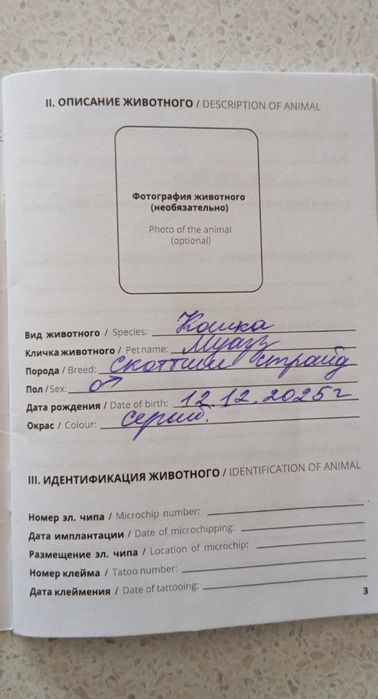 II. ОПИСАНИЕ ЖИВОТНОГО / DESCRIPTION OF ANIMAL
Фотография животного
(необязательно)
Photo of the animal
(optional)
Вид животного / Species: Кошка
Кличка животного / Pet name: Муазз
Порода / Breed: скоттиш страйд
Пол / Sex: ♂
Дата рождения / Date of birth: 12.12.2025г
Окрас / Colour: серый.
III. ИДЕНТИФИКАЦИЯ ЖИВОТНОГО / IDENTIFICATION OF ANIMAL
Номер эл. чипа / Microchip number:
Дата имплантации / Date of microchipping:
Размещение эл. чипа / Location of microchip:
Номер клейма / Tatoo number:
Дата клеймения / Date of tattooing:
3